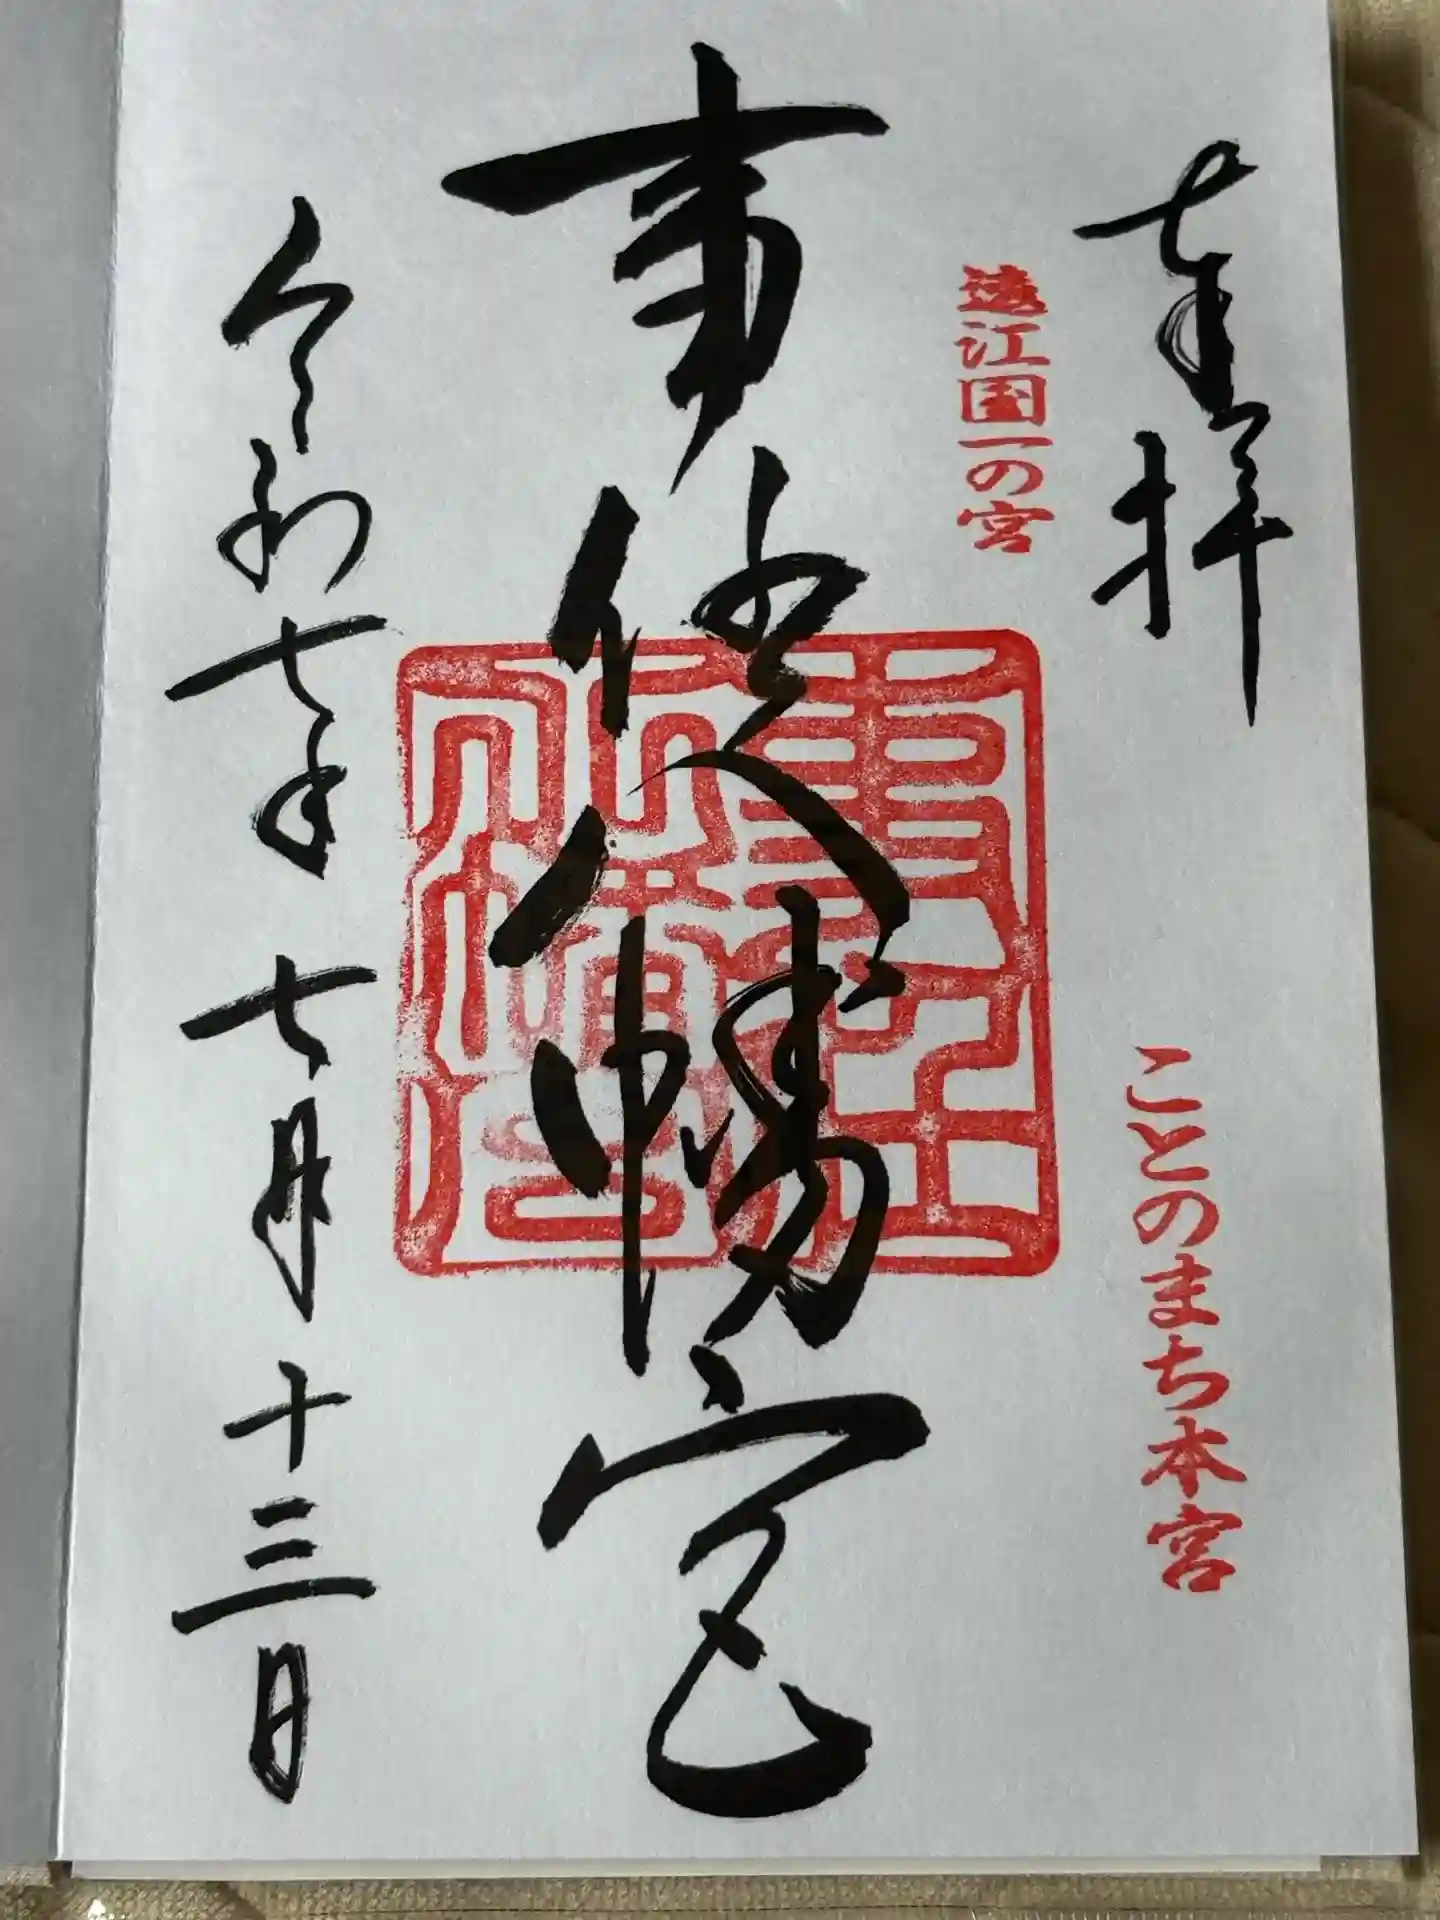 奉拝
ことのまち本宮
遠江国一の宮
事任八幡宮
事任八幡宮
令和七年七月十三日